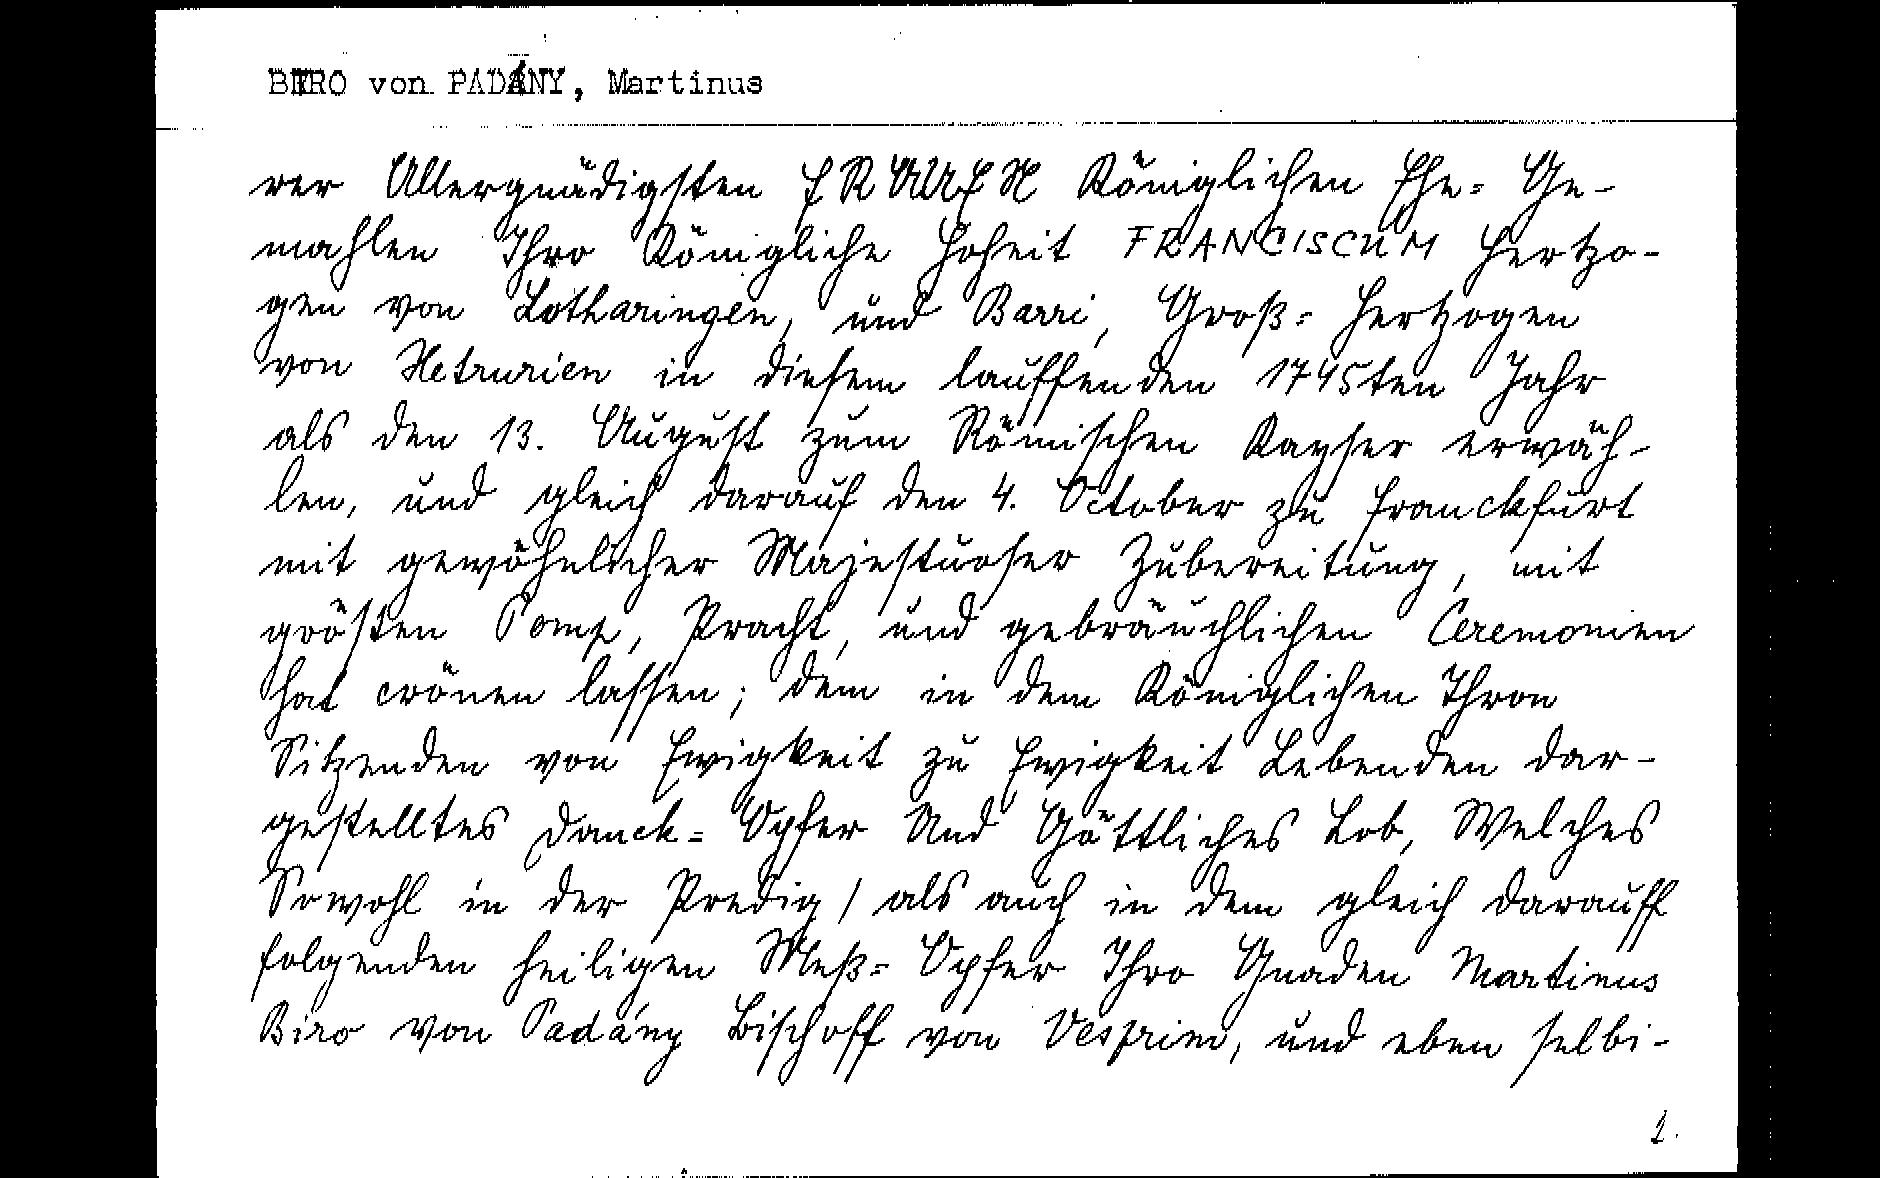 BIRO von PADÁNY, Martinus
rer Allergnädigsten FRAUEN Königlichen Ehe= Ge-
mahlen Ihro Königliche Hoheit FRANCISCUM Hertzo-
gen von Lotharingen, und Barri, Groß= Hertzogen
von Hetrurien in diesem lauffenden 1745ten Jahr
als den 13. August zum Römischen Kayser erwäh-
len, und gleich darauf den 4. October zu Franckfurt
mit gewöhnlicher Majestuoser Zubereitung, mit
grösten Pomp, Pracht, und gebräuchlichen Ceremonien
hat crönen lassen; dem in dem Königlichen Thron
Sitzenden von Ewigkeit zu Ewigkeit Lebenden dar-
gestelltes Danck= Opfer Und Göttliches Lob, Welches
Sowohl in der Predig / als auch in dem gleich darauff
folgenden heiligen Meß= Opfer Ihro Gnaden Martinus
Biro von Padány Bischoff von Vesprim, und eben selbi-
1.